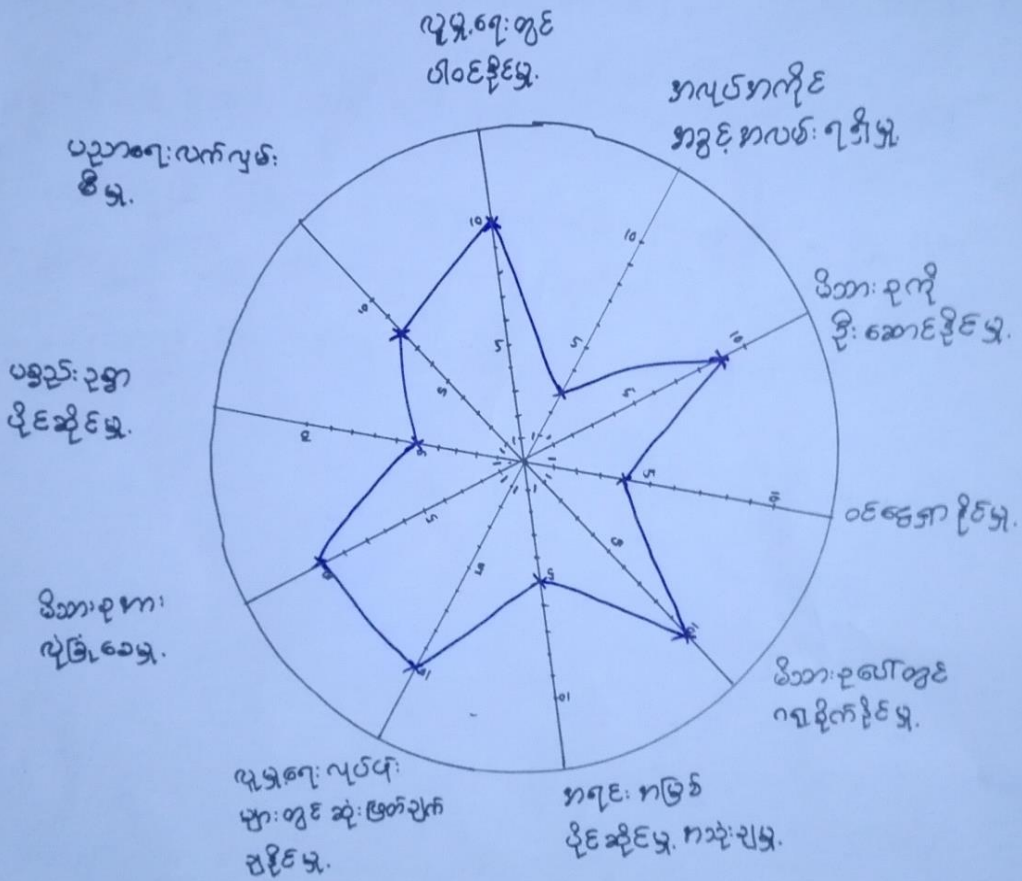 လူမှုရေးတွင်
ပါဝင်နိုင်မှု.
အလုပ်အကိုင်
အခွင့်အလမ်းရရှိမှု.
မိသားစုကို
ဦးဆောင်နိုင်မှု.
ဝင်ငွေရှာနိုင်မှု.
မိသားစုပေါ်တွင်
ဂရုစိုက်နိုင်မှု.
အရင်းအမြစ်
ပိုင်ဆိုင်မှု, အသုံးချမှု.
လူမှုရေးလုပ်ငန်း
များတွင် ဆုံးဖြတ်ချက်
ချနိုင်မှု.
မိသားစုအား
လုံခြုံစေမှု.
ပစ္စည်းဥစ္စာ
ပိုင်ဆိုင်မှု.
ပညာရေးလက်လှမ်း
မီမှု.
10
5
10
5
10
5
5
10
5
10
5
10
5
10
5
5